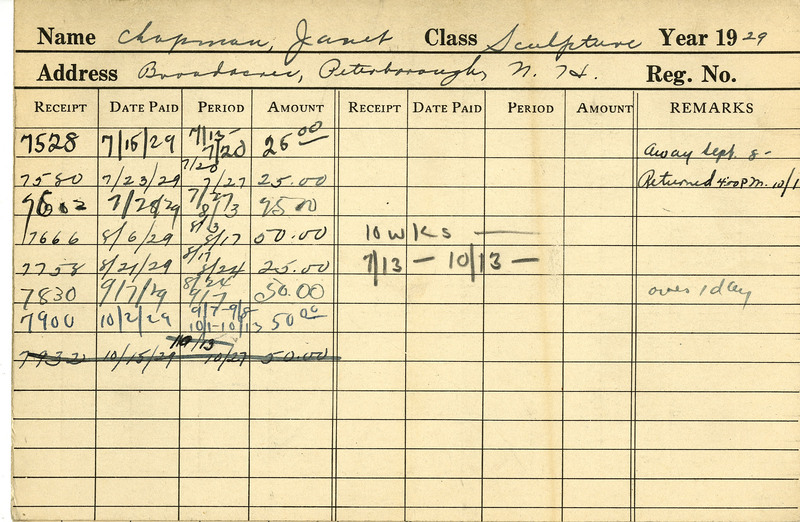 Name Chapman, Janet Class Sculpture Year 1929
Address Broadacres, Peterborough, N. H. Reg. No.
RECEIPT DATE PAID PERIOD AMOUNT RECEIPT DATE PAID PERIOD AMOUNT REMARKS
7528 7/15/29 7/13- 7/20 25.00 Away Sept. 8-
7580 7/23/29 7/20 7/27 25.00 Returned 4:00 P.M. 10/1
7/28/29 7/27 8/3 25.00
7666 8/6/29 8/3 8/17 50.00 10 wks —
7758 8/21/29 8/17 8/24 25.00 7/13 — 10/13 —
7830 9/7/29 8/24 9/7 50.00 owes 1 day
7900 10/2/29 9/7-9/8 10/1-10/13 50.00
7932 10/15/29 10/13 10/27 50.00